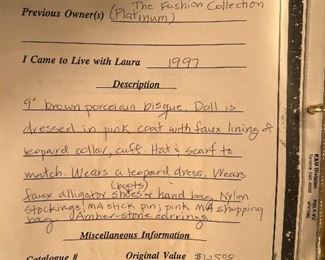 The Fashion Collection
Previous Owner(s) (Platinum)
I Came to Live with Laura 1997
Description
9" brown porcelain bisque. Doll is
dressed in pink coat with faux lining of
leopard collar, cuff. Hat & scarf to
match. Wears a leopard dress. Wears
(boots)
faux alligator shoes & hand bag. Nylon
stockings; MA stick pin; pink MA shopping
bag (Amber-stone earrings
Miscellaneous Information
Catalogue # Original Value
K&M Division
Torrance, CA 90503